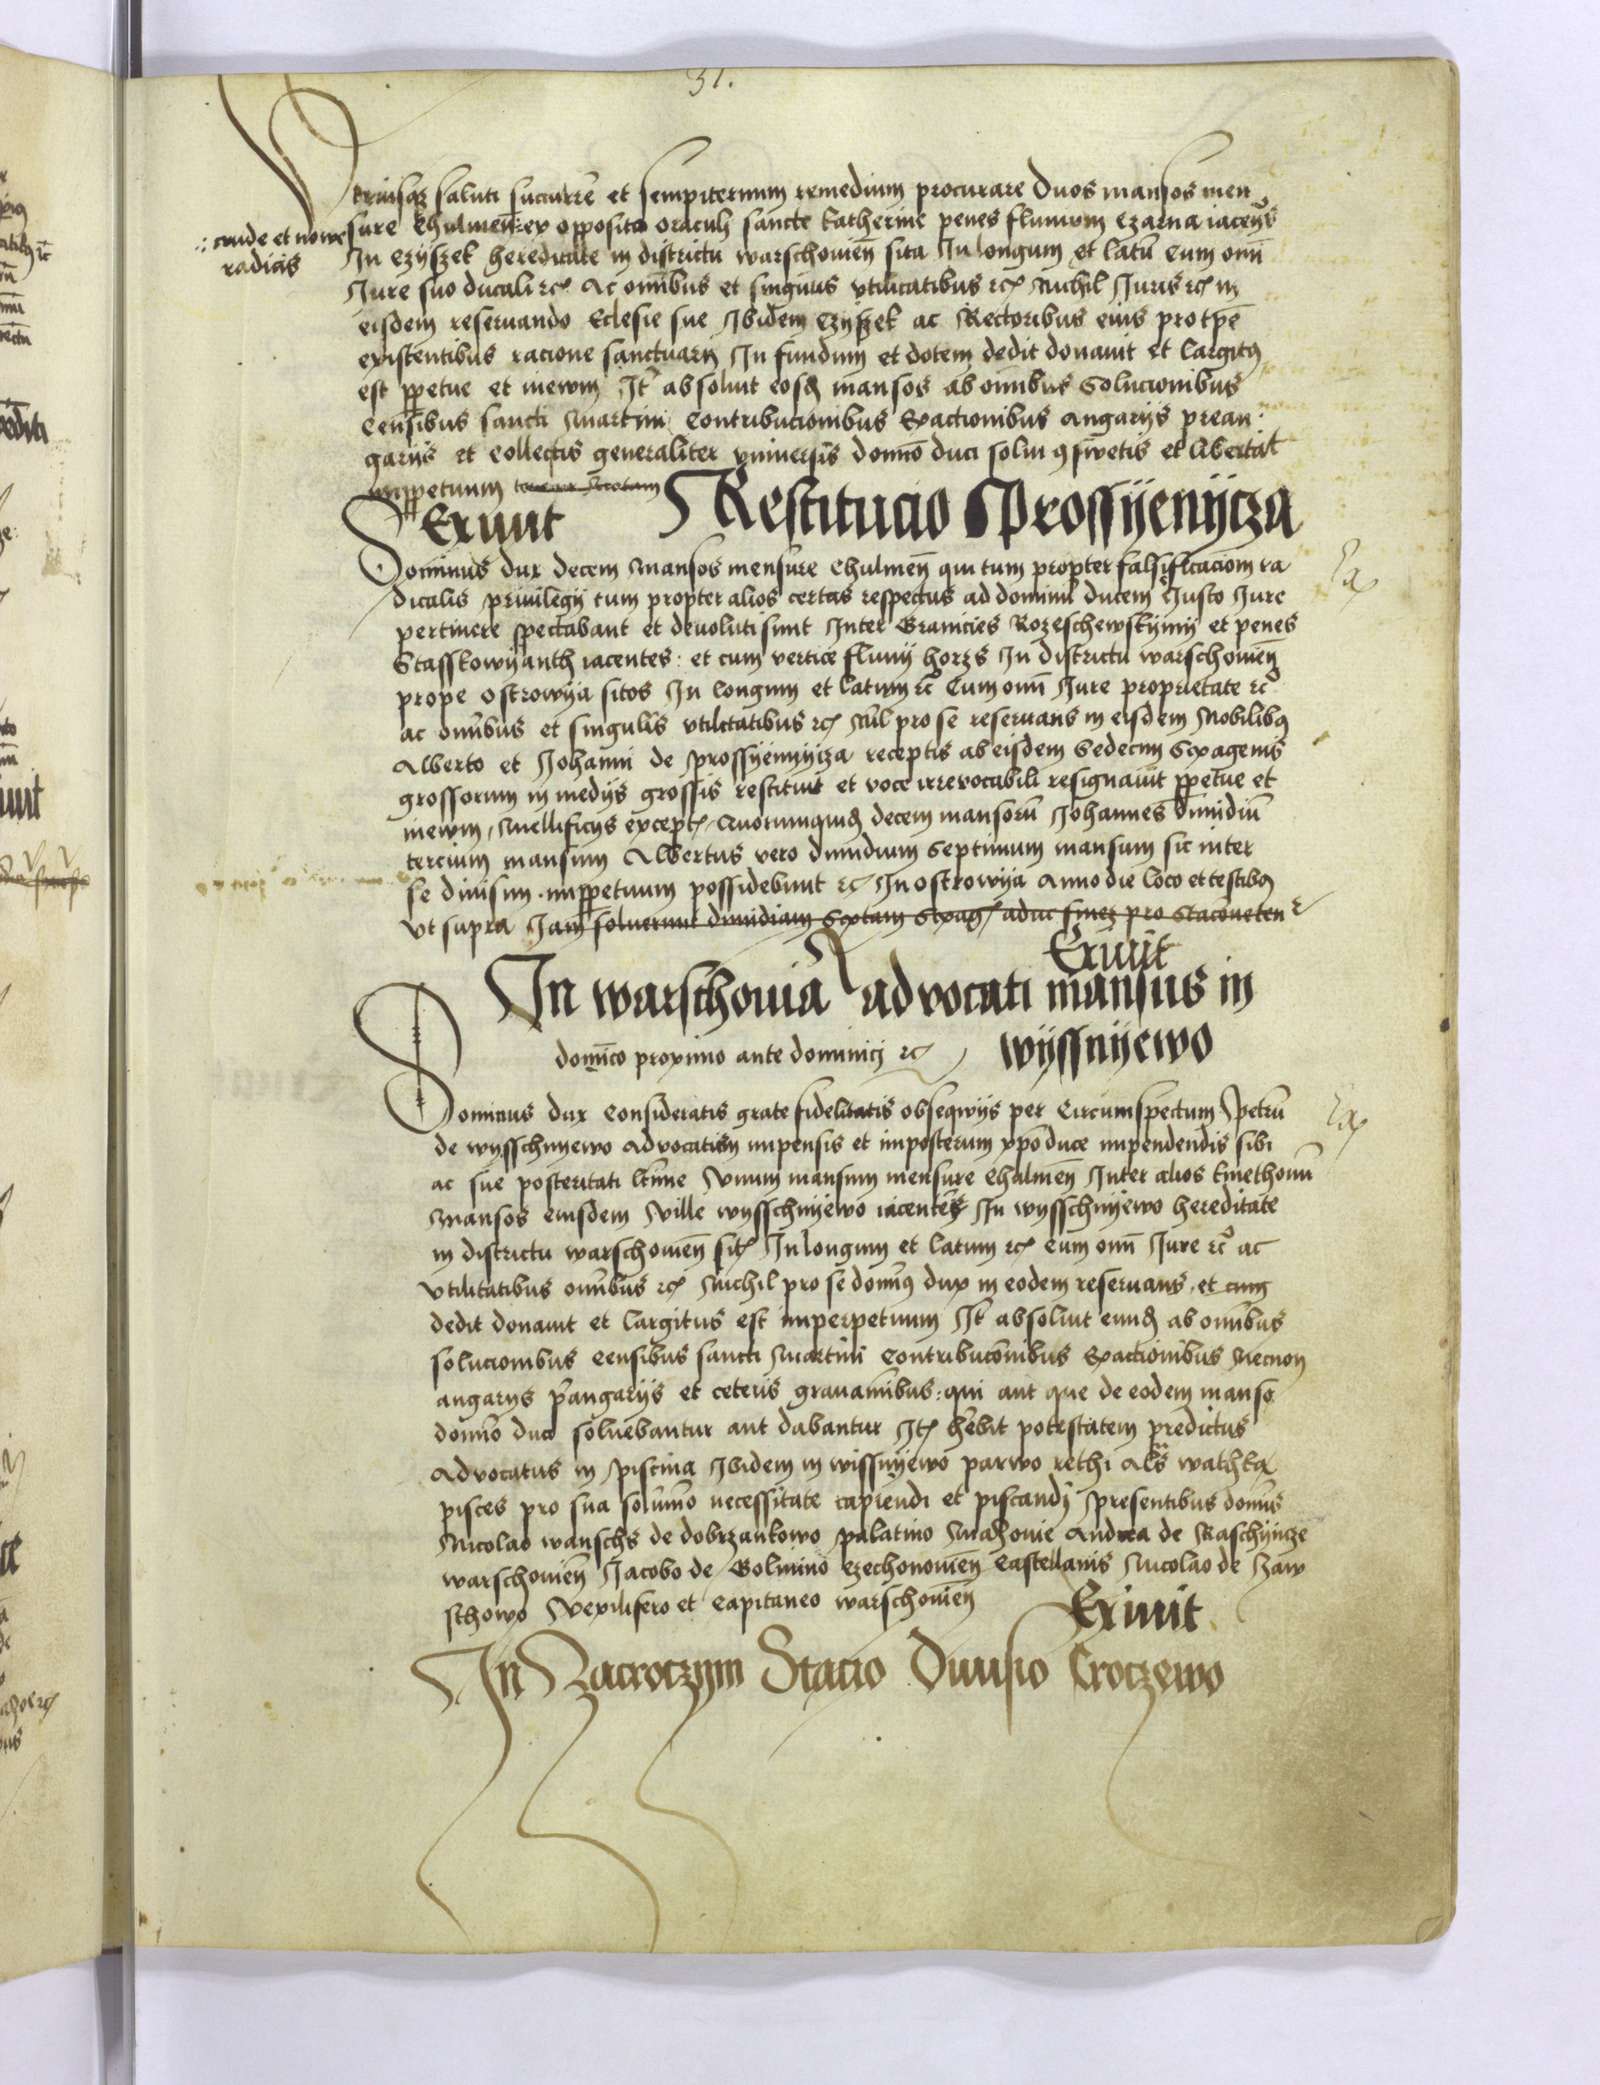 31.
triusqz saluti sucurre et sempiternum remedium procurare Duos mansos men
sure Chulmen ex opposito oraculi sancte Katherine penes fluvium Czarna iacen
.: crude et nowe
radicis
In Czyszek hereditate in districtu warschouien sita In longum et latu Cum omi
Jure suo ducali rc Ac omibus et singulis vtilitatibus rc Nichil Juris rc in
eisdem reseruando Eclesie sue Ibidem Czyszek ac Rectoribus eius pro tpe
existentibus racione sanctuarii In fundum et dotem dedit donauit et largitus
est ppetue et inewm It absoluit eosd mansos ab omibus Solucionibus
Censibus sancti Martini Contribucionibus Exactionibus Angarijs prean
garijs et Collectis generaliter vniuersis domno duci solui 9swetis et libertat
inppetuum
Exiuit Restitucio Prossyenycza
Dominus dux decem Mansos mensure Chulmen qui tum propter falsificaciom ra
dicalis priuilegij tum propter alios certos respectus ad dominu ducem Justo Jure
pertinere spectabant et deuoluti sunt Inter Granicies Rozeschewskymy et penes
Stasskowyanth iacentes : et cum vertice fluuij horzs In districtu warschouien
prope Ostrowya sitos In longum et latum rc Cum omi Jure proprietate rc
ac omibus et singulis vtilitatibus rc Nil pro se reseruans in eisdem Nobilibus
Alberto et Johanni de Prossyenycza receptis ab eisdem Sedecim Sexagenis
grossorum in medijs grossis restituit et voce irreuocabili resignauit ppetue et
inewm, Mellificijs except, Quorumquid decem mansoru Johannes dimidiu
tercium mansum Albertus vero dimidium Septimum mansum sic inter
se diuisum inppetuum possidebunt rc In Ostrowya Anno die loco et testibus
vt supra Jam soluerunt dimidiam Sextam Sexag aduc
Exiuit
In warschouia aduocati mansus in
domico proximo ante dominici rc wyssnyewo
Dominus dux Consideratis grate fidelitatis obseqwijs per Circumspectum Petru
de wysschnyewo Aduocatum impensis et imposterum ipso duce impendendis sibi
ac sue posteritati ltime Vnum mansum mensure Chulmen Inter alios kmethonu
Mansos eiusdem Ville wysschnyewo iacentes In wysschnyewo hereditate
in districtu warschouien sit In longum et latum rc cum omi Jure rc ac
vtilitatibus omibus rc Nichil pro se domus dux in eodem reseruans, et cum
dedit donauit et largitus est imperpetuum It absoluit eund ab omibus
solucionibus Censibus sancti Martini Contribucionibus Exactionibus Necnon
angarijs pangarijs et ceteris grauamibus : qui aut que de eodem manso
domno duci soluebantur aut dabantur It hebit potestatem predictus
Aduocatus in piscina Ibidem in wissnyewo parwo rethi als wathka
pisces pro sua solumo necessitate capiendi et piscandi Presentibus domis
Nicolao wanschs de dobrzankowo palatino Mazouie Andrea de Raschyncze
warschouien Jacobo de Golmino Czechonouien Castellanis Nicolao de Zaw
schowo Vexilifero et Capitaneo warschouien Exiuit
In Zacroczym Stacio Diuisio Croczewo